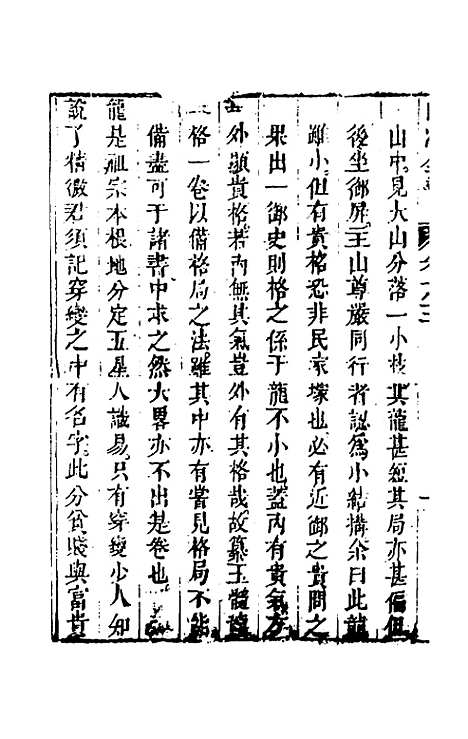 山中見大山分落一小枝其龍甚短其局亦甚偏但
後坐御屏王山尊嚴同行者認為小結搆余曰此龍
雖小但有貴格恐非民家墳也必有近御之貴問之
果出一御史則格之係于龍不小也蓋內有貴氣方
外顯貴格若內無其氣豈外有其格哉故纂玉髓
格一卷以備格局之法雖其中亦有嘗見格局不能
備盡可于諸書中求之然大畧亦不出是卷也
龍是祖宗本根地分定五星人識易只有穿變少人知
說了精微君須記穿變之中有名字此分貧賤與富貴